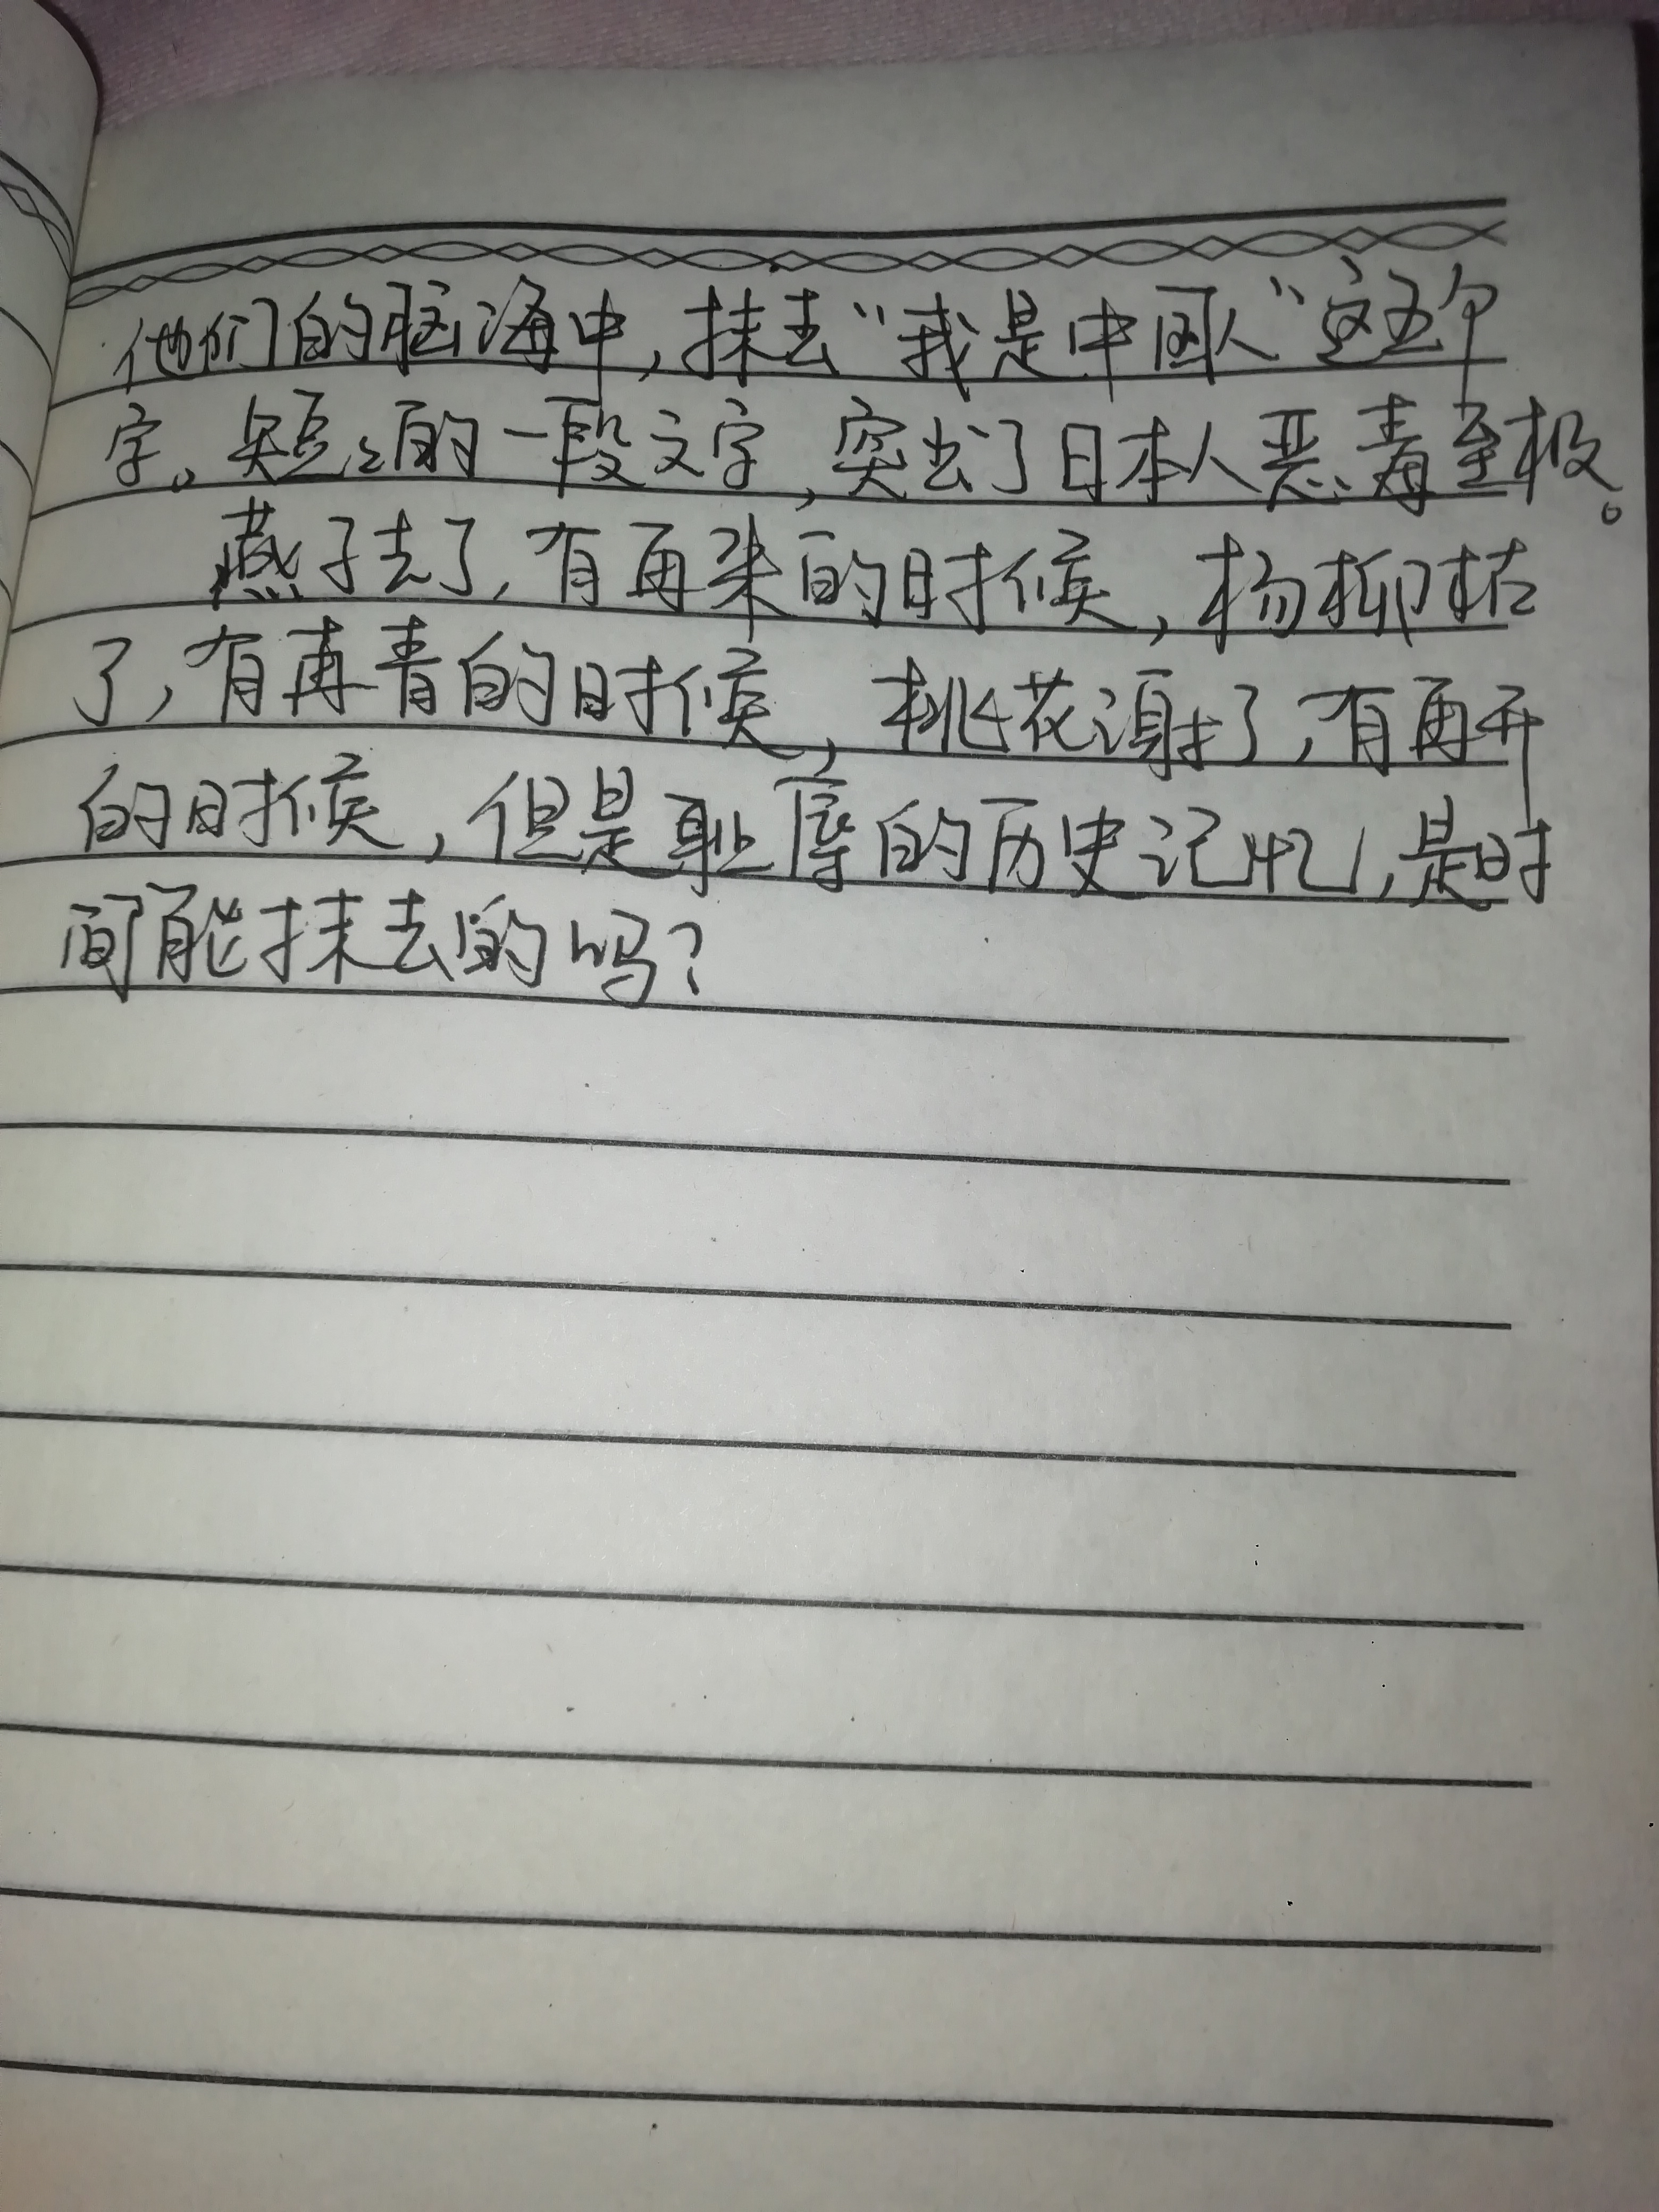 他们的脑海中，抹去“我是中国人”这五个
字。短短的一段文字，突出了日本人恶毒至极。
燕子去了，有再来的时候，杨柳枯
了，有再青的时候，桃花谢了，有再开
的时候，但是耻辱的历史记忆，是时
间能抹去的吗？